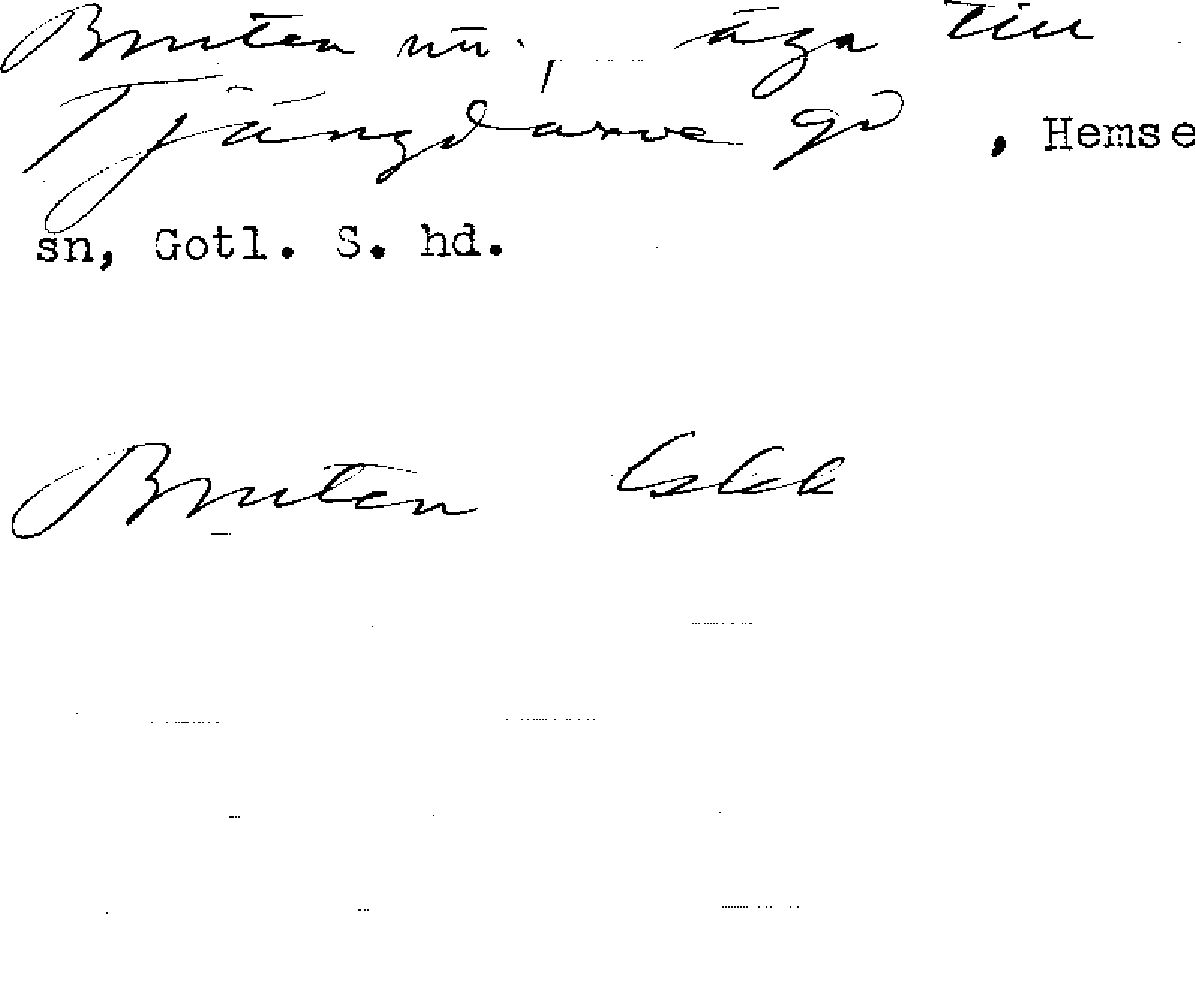 Bruten äga till
Tjängdarve gd , Hemse
sn, Gotl. S. hd.
Bruten